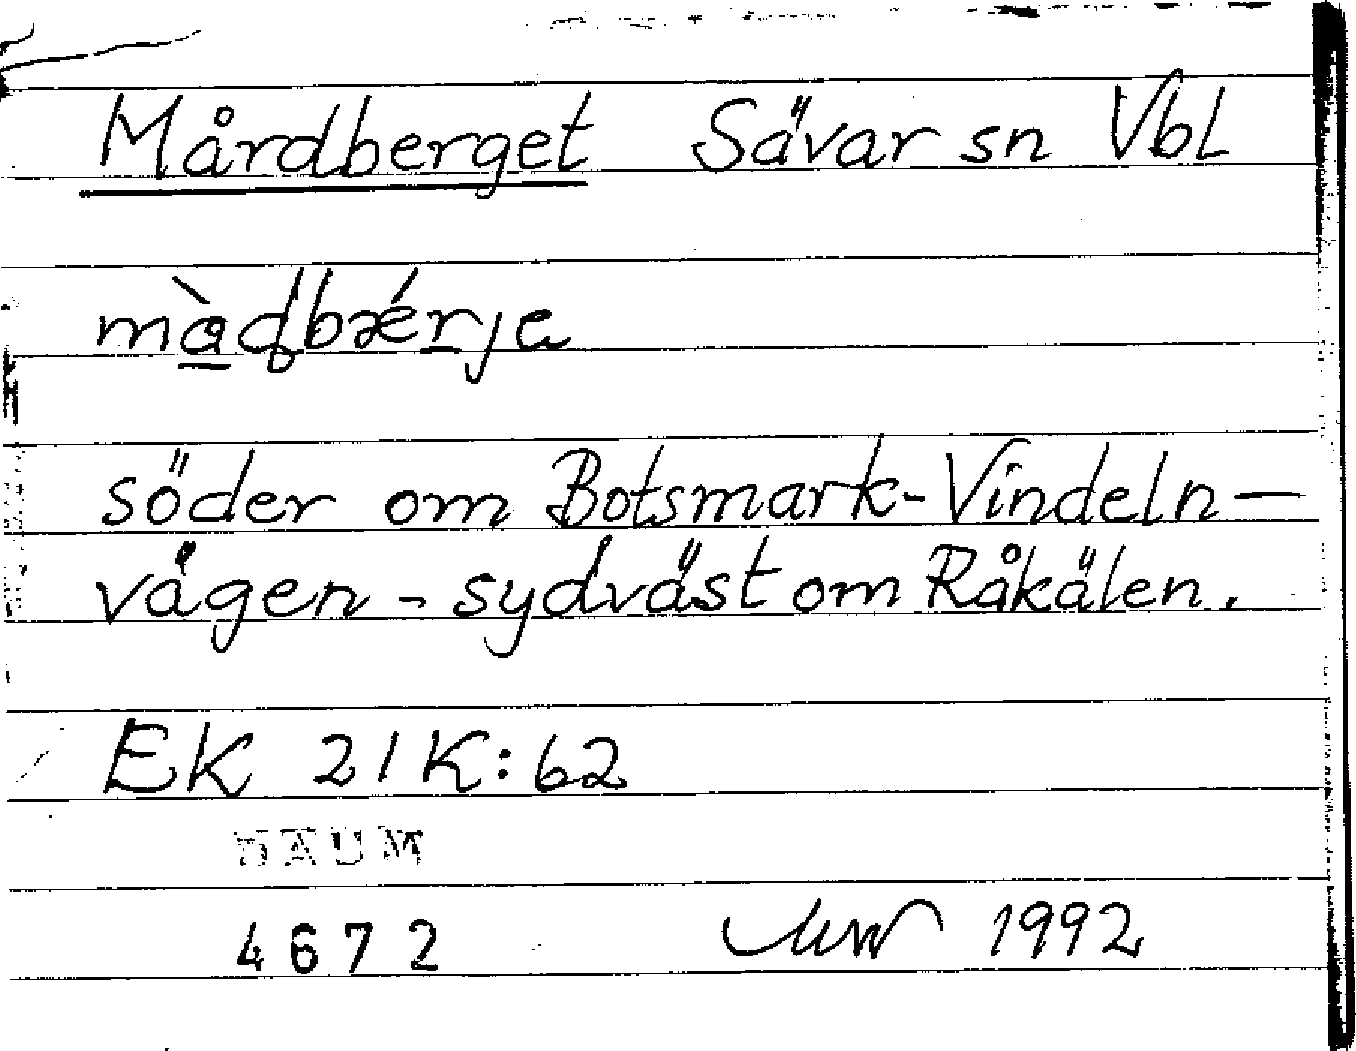 Mårdberget Sävar sn Vbl
söder om Botsmark-Vindeln-
vägen - sydväst om Råkälen.
EK 21K:62
DAUM
4672 1992